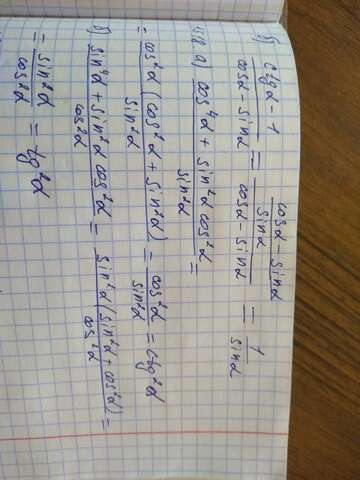 б) (ctgα - 1)/(cosα - sinα) = ((cosα - sinα)/sinα)/(cosα - sinα) = 1/sinα
а) (cos⁴α + sin²α cos²α)/sin²α =
= cos²α (cos²α + sin²α)/sin²α = cos²α/sin²α = ctg²α
б) (sin⁴α + sin²α cos²α)/cos²α = sin²α (sin²α + cos²α)/cos²α =
= sin²α/cos²α = tg²α